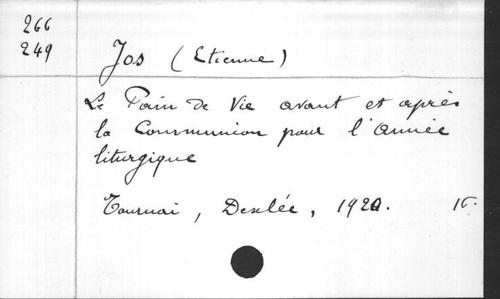 266
249
Jos (Etienne)
Le Pain de Vie avant et après
la Communion pour l'Année
liturgique
Tournai, Desclée, 1920. 16.